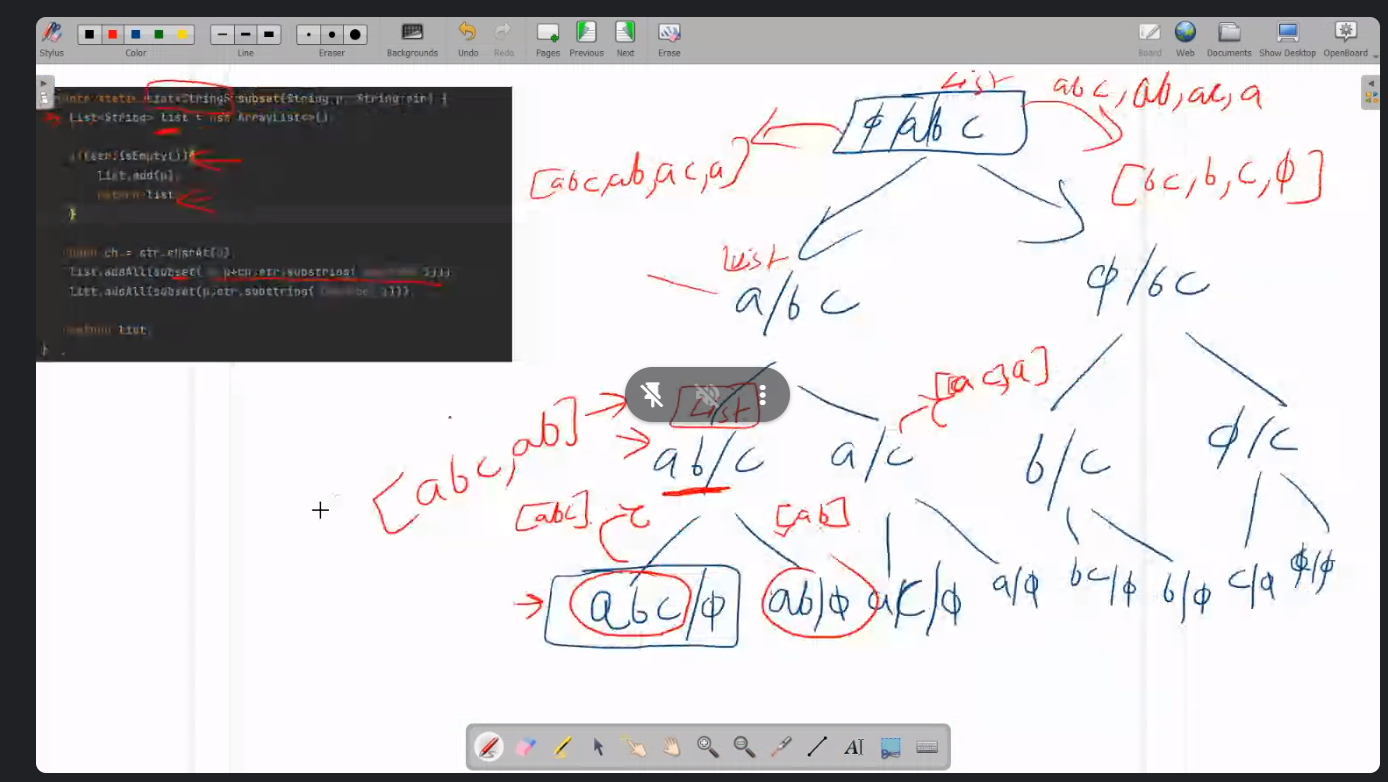 Stylus
Color
Line
Eraser
Backgrounds
Undo
Redo
Pages
Previous
Next
Erase
Board
Web
Documents
Show Desktop
OpenBoard
List<String> subset(String p, String str) {
List<String> list = new ArrayList<>();
if(str.isEmpty()){
list.add(p);
return list;
}
char ch = str.charAt(0);
list.addAll(subset( p+ch,str.substring( 1)));
list.addAll(subset(p,str.substring( 1)));
return list;
}
List
abc, ab, ac, a
ϕ/abc
[abc,ab,ac,a]
[bc, b, c, ϕ]
List
a/bc
ϕ/bc
[ac,a]
List
[abc,ab]
ab/c
a/c
b/c
ϕ/c
[abc]
[ab]
abc/ϕ
ab/ϕ
ac/ϕ
a/ϕ
bc/ϕ
b/ϕ
ϕ/ϕ
AI